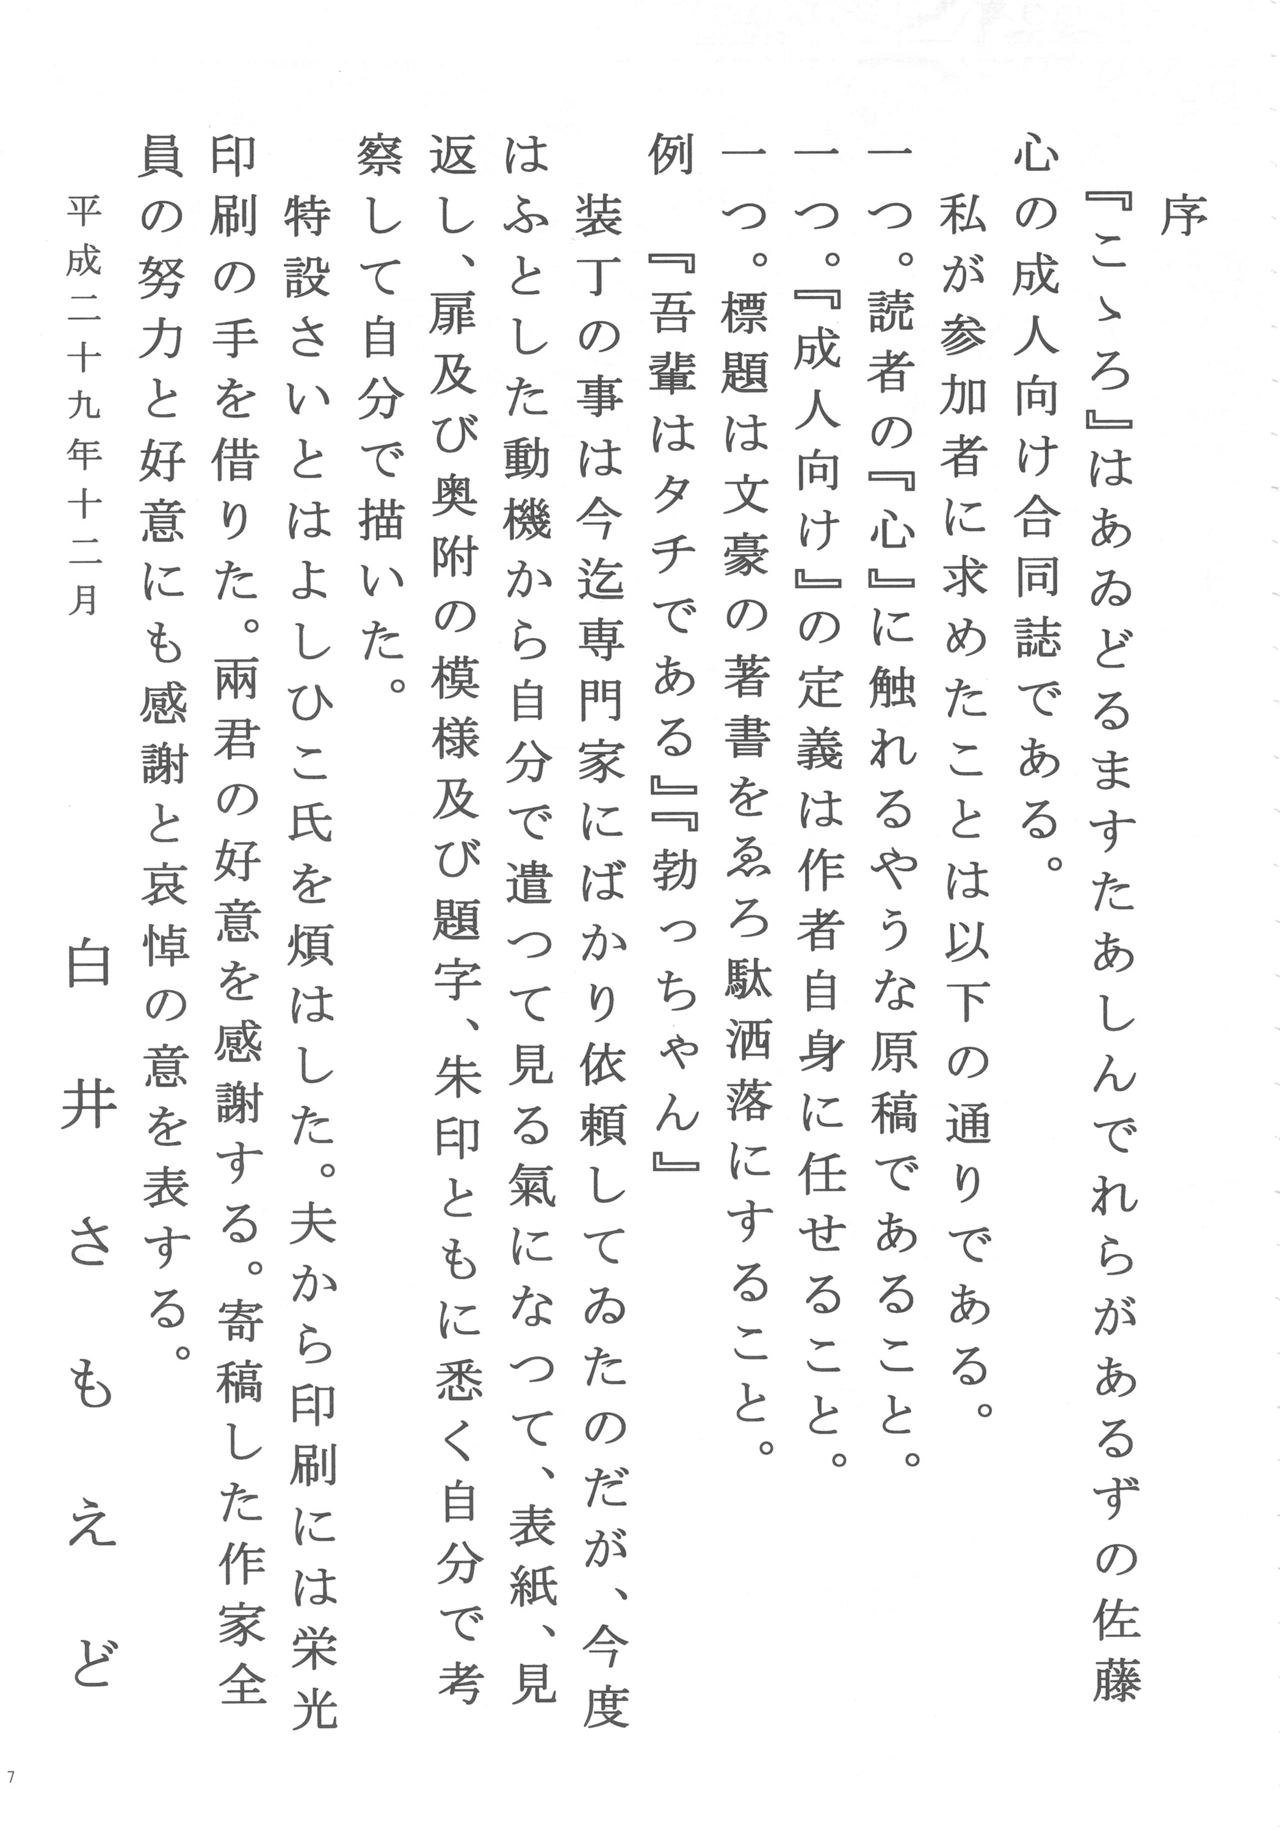 序
『こゝろ』はあゐどるますたあしんでれらがあるずの佐藤
心の成人向け合同誌である。
私が参加者に求めたことは以下の通りである。
一つ。読者の『心』に触れるやうな原稿であること。
一つ。『成人向け』の定義は作者自身に任せること。
一つ。標題は文豪の著書をゑろ駄洒落にすること。
例　『吾輩はタチである』『勃っちゃん』
装丁の事は今迄専門家にばかり依頼してゐたのだが、今度
はふとした動機から自分で遣つて見る氣になつて、表紙、見
返し、扉及び奥附の模様及び題字、朱印ともに悉く自分で考
察して自分で描いた。
特設さいとはよしひこ氏を煩はした。夫から印刷には栄光
印刷の手を借りた。兩君の好意を感謝する。寄稿した作家全
員の努力と好意にも感謝と哀悼の意を表する。
平成二十九年十二月
白井さもえど
7